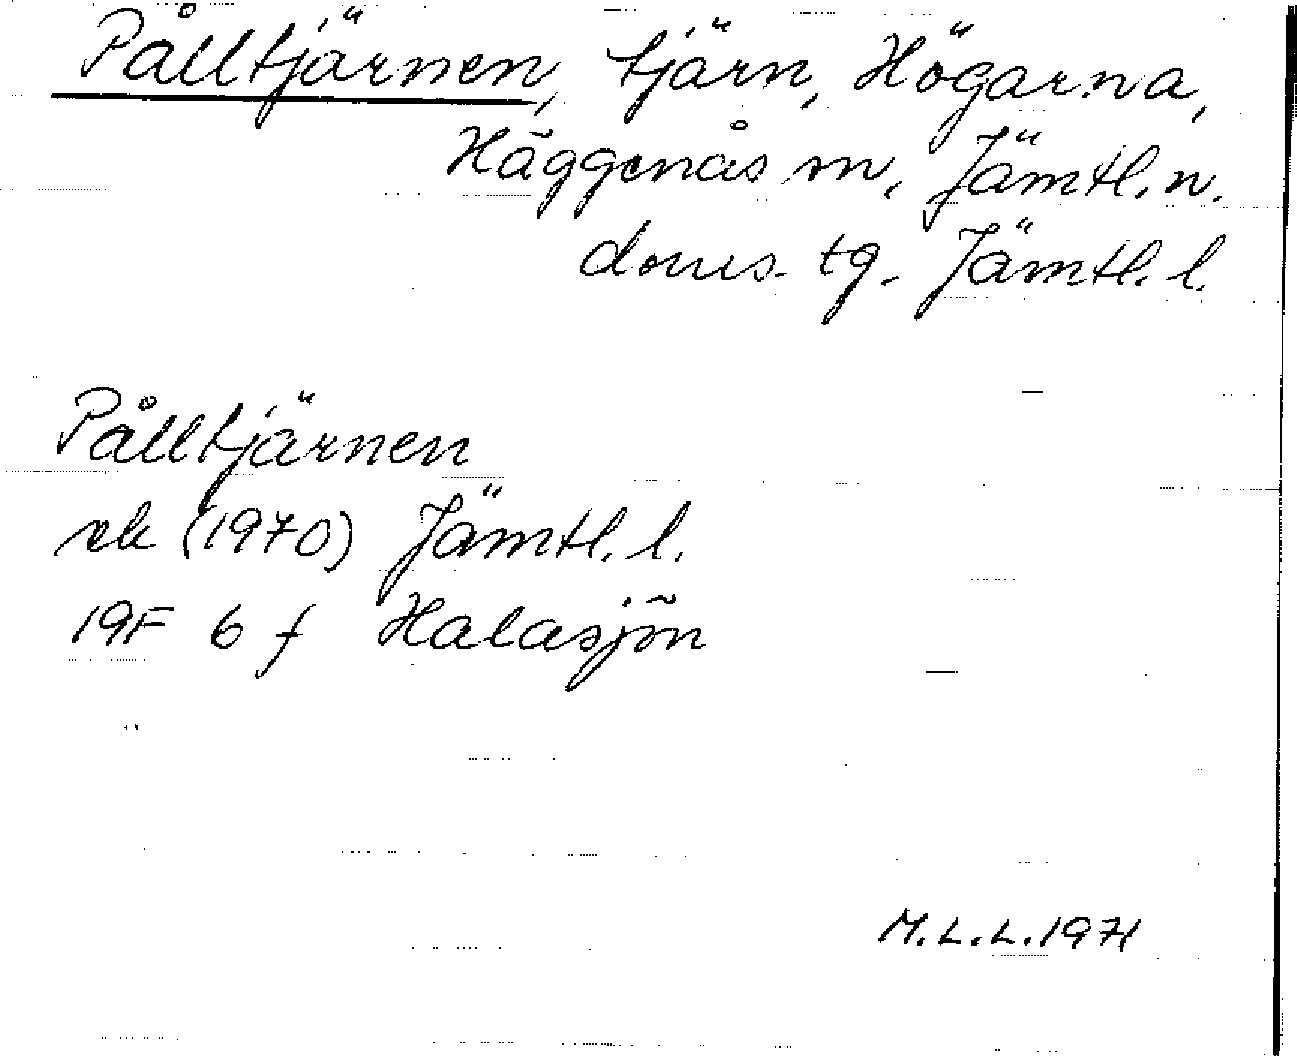 Pålltjärnen, tjärn, Högarna,
Häggenås sn, Jämtl. n.
doms. tg. Jämtl. l.
Pålltjärnen
ek (1970) Jämtl. l.
19F 6 f Halasjön
M.L.L. 1971